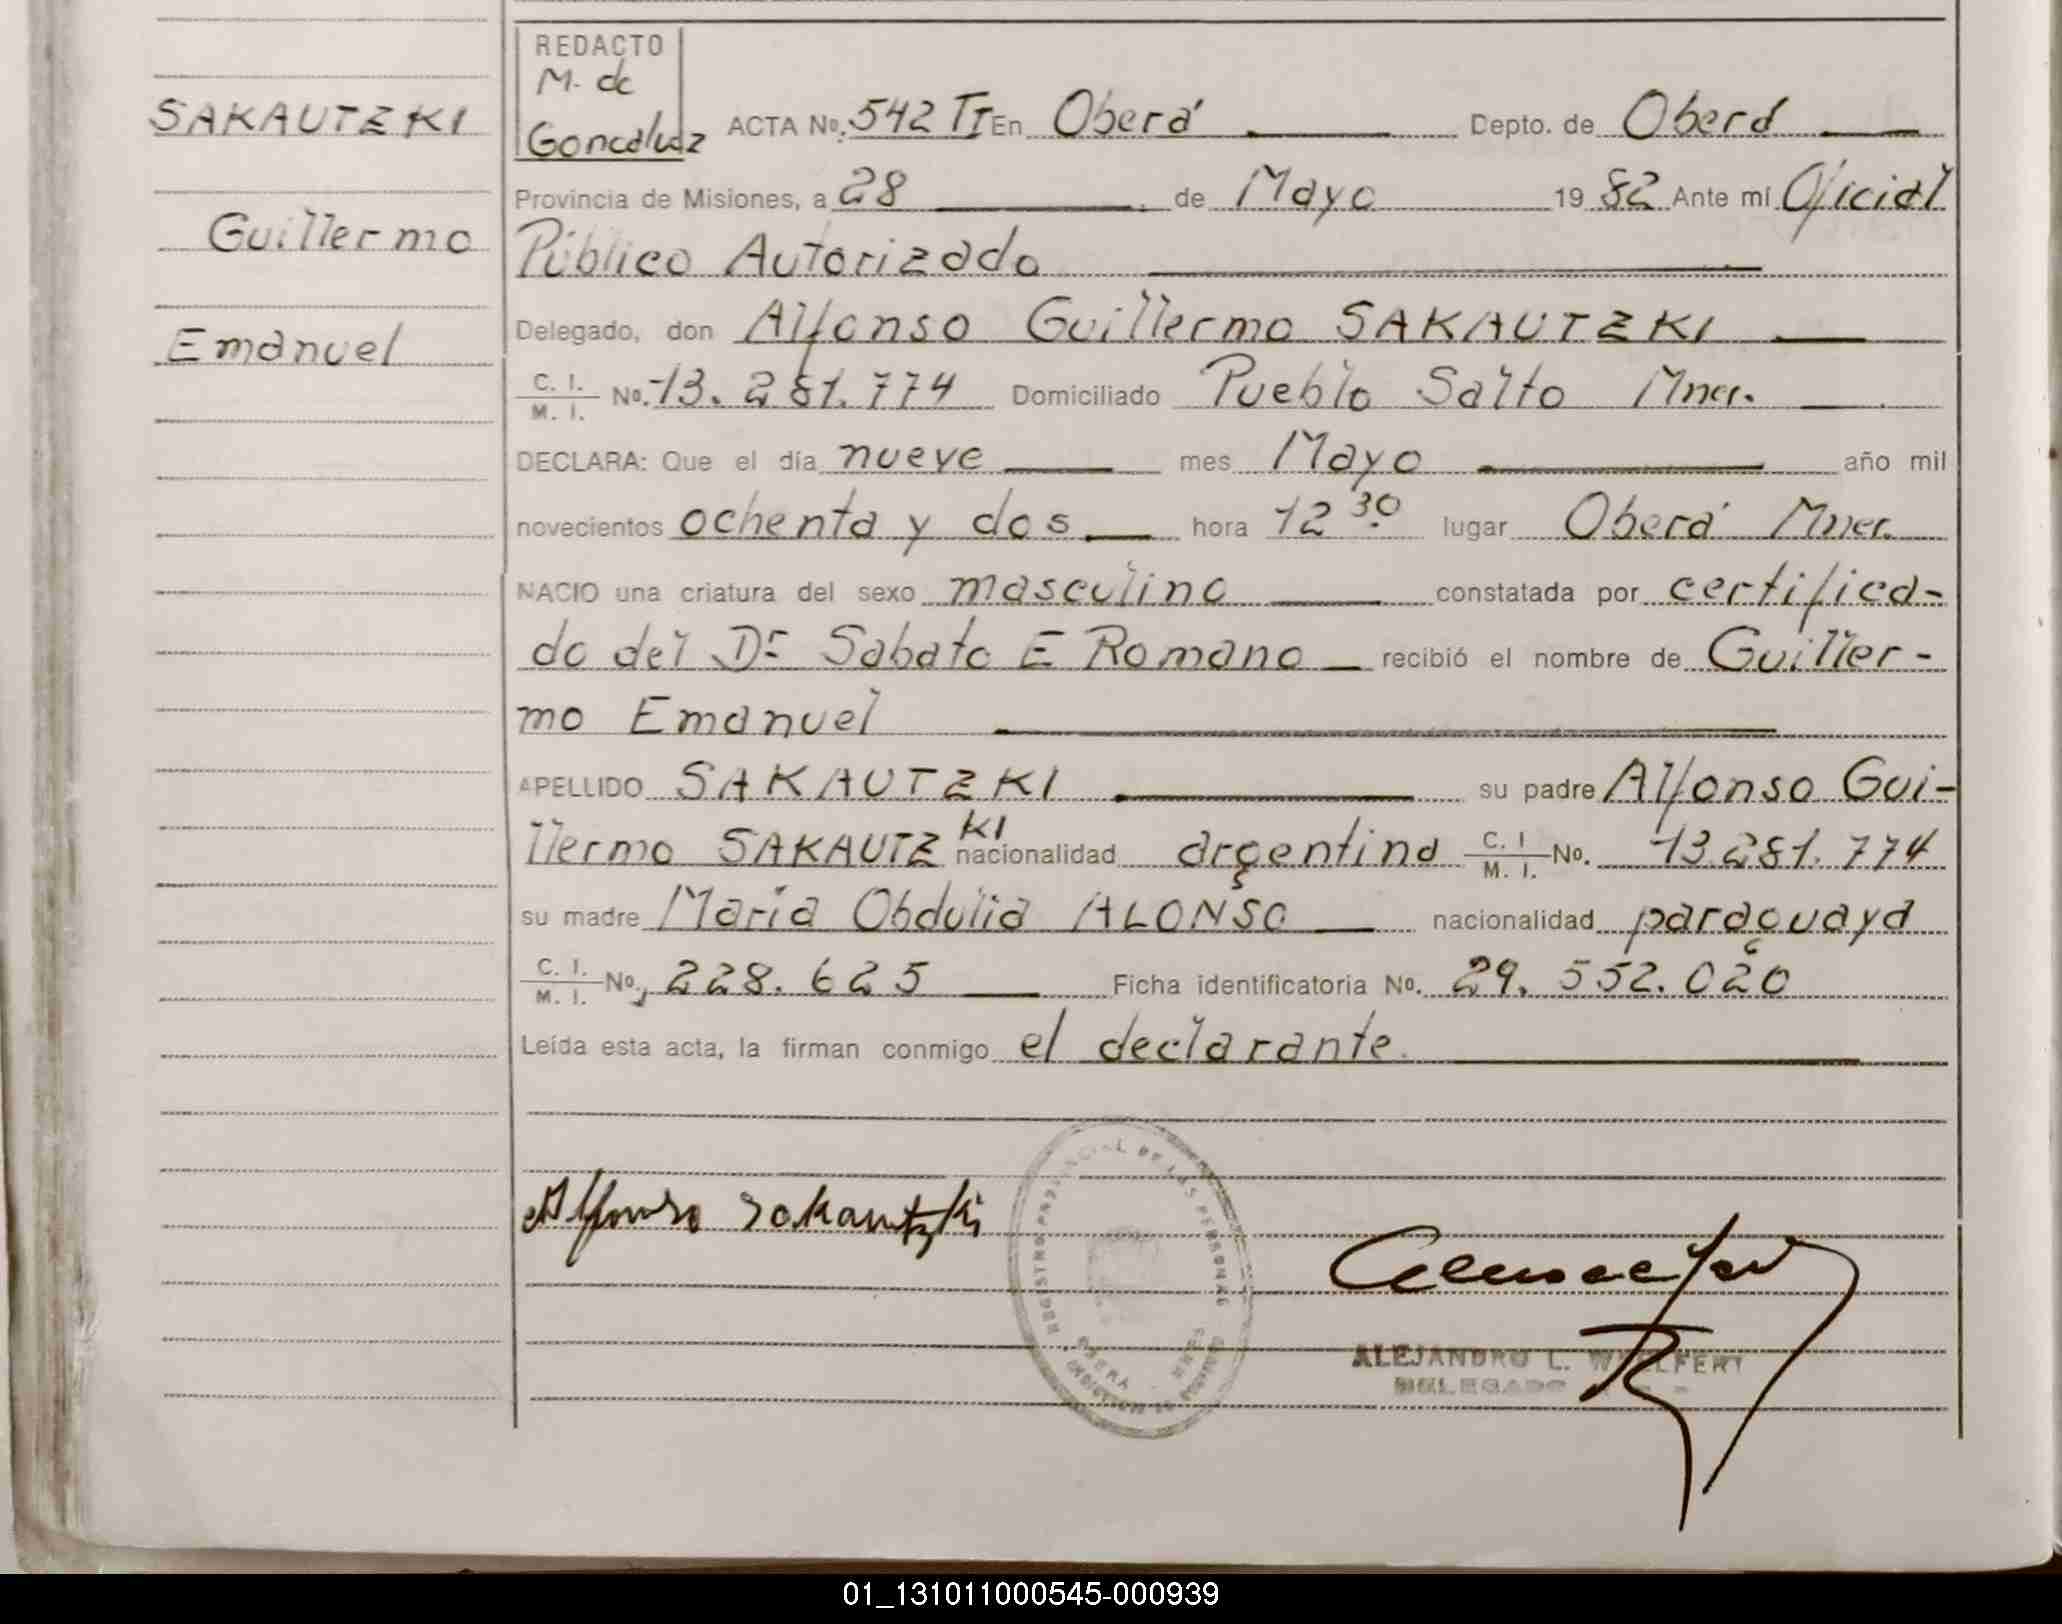 REDACTO
M. de
Goncalvez
SAKAUTZKI
Guillermo
Emanuel
ACTA No. 542 TI En Oberá Depto. de Oberá
Provincia de Misiones, a 28 de Mayo 1982 Ante mi Oficial
Público Autorizado
Delegado, don Alfonso Guillermo SAKAUTZKI
C. I. M. I. No. 13.281.774 Domiciliado Pueblo Salto Mnes.
DECLARA: Que el día nueve mes Mayo año mil
novecientos ochenta y dos hora 12 30 lugar Oberá Mnes.
NACIO una criatura del sexo masculino constatada por certifica-
do del Dr Sabato E Romano recibió el nombre de Guiller-
mo Emanuel
APELLIDO SAKAUTZKI su padre Alfonso Gui-
llermo SAKAUTZKI nacionalidad argentina C. I M. I. No. 13.281.774
su madre María Obdulia ALONSO nacionalidad paraguaya
C. I. M. I. No. 228.625 Ficha identificatoria No. 29.552.020
Leída esta acta, la firman conmigo el declarante.
Alfonso Sakautzki
REGISTRO PROVINCIAL DE LAS PERSONAS
OBERA
MISIONES
ALEJANDRO L.
DELEGADO
01_131011000545-000939